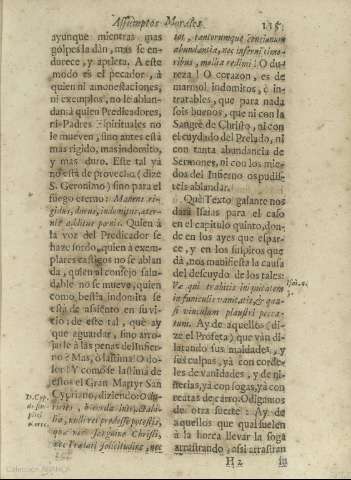 Assumptos Morales. 115.
ayunque mientras mas
golpes la dàn, mas se en-
durece, y aprieta. A este
modo es el pecador, à
quien ni amonestaciones,
ni exemplos, no le ablan-
dan: à quien Predicadores,
ni Padres Espirituales no
le mueven, sino antes està
mas rigido, mas indomito,
y mas duro. Este tal ya
no està de provecho (dize
S. Geronimo) sino para el
fuego eterno: Manens ri-
gidus, durus, indomitus, æter-
nis additur pœnis. Quien à
la voz del Predicador se
haze sordo, quien à exem-
plares castigos no se ablan-
da, quien al consejo saluda-
ble no se mueve, quien
como bestia indomita se
està de assiento en su vi-
cio: de este tal, què ay
que aguardar, sino arro-
jarle à las penas del Infier-
no? Mas, ò lastima! O do-
lor! Y como se lastima de
estos el Gran Martyr San
Cypriano, diziendo: O du-
D. Cyp.
de
tot, tantorumque
abundantia, nec inferni timo-
ribus, mollita redimi! O du-
reza! O corazon, es de
marmol, indomitos, è in-
tratables, que para nada
sois buenos, que ni con la
Sangre de Christo, ni con
el cuydado del Prelado, ni
con tanta abundancia de
Sermones, ni con los mie-
dos del Infierno os pudis-
teis ablandar.
Què Texto galante nos
darà Isaias para el caso
en el capitulo quinto, don-
de en los ayes que espar-
ce, y en los suspiros que
dà, nos manifiesta la causa
del descuydo de los tales:
Isai. c.
5.
Væ qui trahitis iniquitatem
in funiculis vanitatis, & qua-
si vinculum plaustri pecca-
tum. Ay de aquellos (di-
ze el Profeta) que vàn di-
latando sus maldades, y
sus culpas, yà con corde-
les de vanidades, y de ni-
ñerias, yà con sogas, yà con
reatas de carro. Odigamos
de otra suerte: Ay de
aquellos que qual suelen
à la horca llevar la soga
arrastrando, assi arrastran